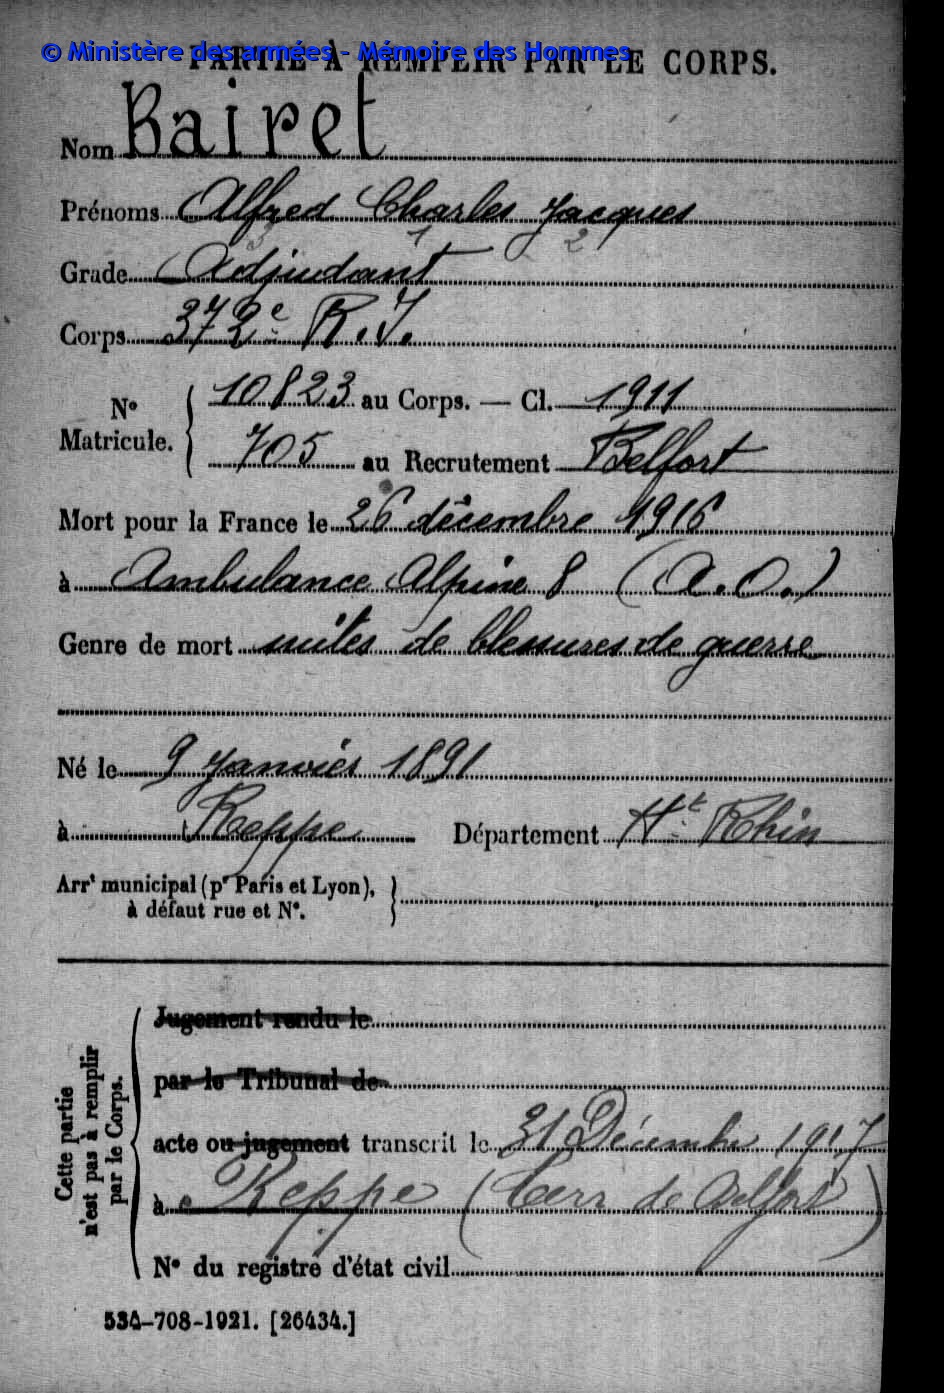 © Ministère des armées - Mémoire des Hommes
PARTIE À REMPLIR PAR LE CORPS.
Nom Bairet
Prénoms Alfred Charles Jacques
3 1 2
Grade Adjudant
Corps 372e R.I.
No Matricule. 10823 au Corps. — Cl. 1911
705 au Recrutement Belfort
Mort pour la France le 26 décembre 1916
à Ambulance Alpine 8 (A.O.)
Genre de mort suites de blessures de guerre
Né le 9 Janvier 1891
à Reppe Département Ht Rhin
Arrt municipal (pr Paris et Lyon),
à défaut rue et No.
Cette partie
n'est pas à remplir
par le Corps.
Jugement rendu le
par le Tribunal de
acte ou jugement transcrit le 31 Décembre 1917
à Reppe (Terr de Belfort)
No du registre d'état civil
534-708-1921. [26434.]